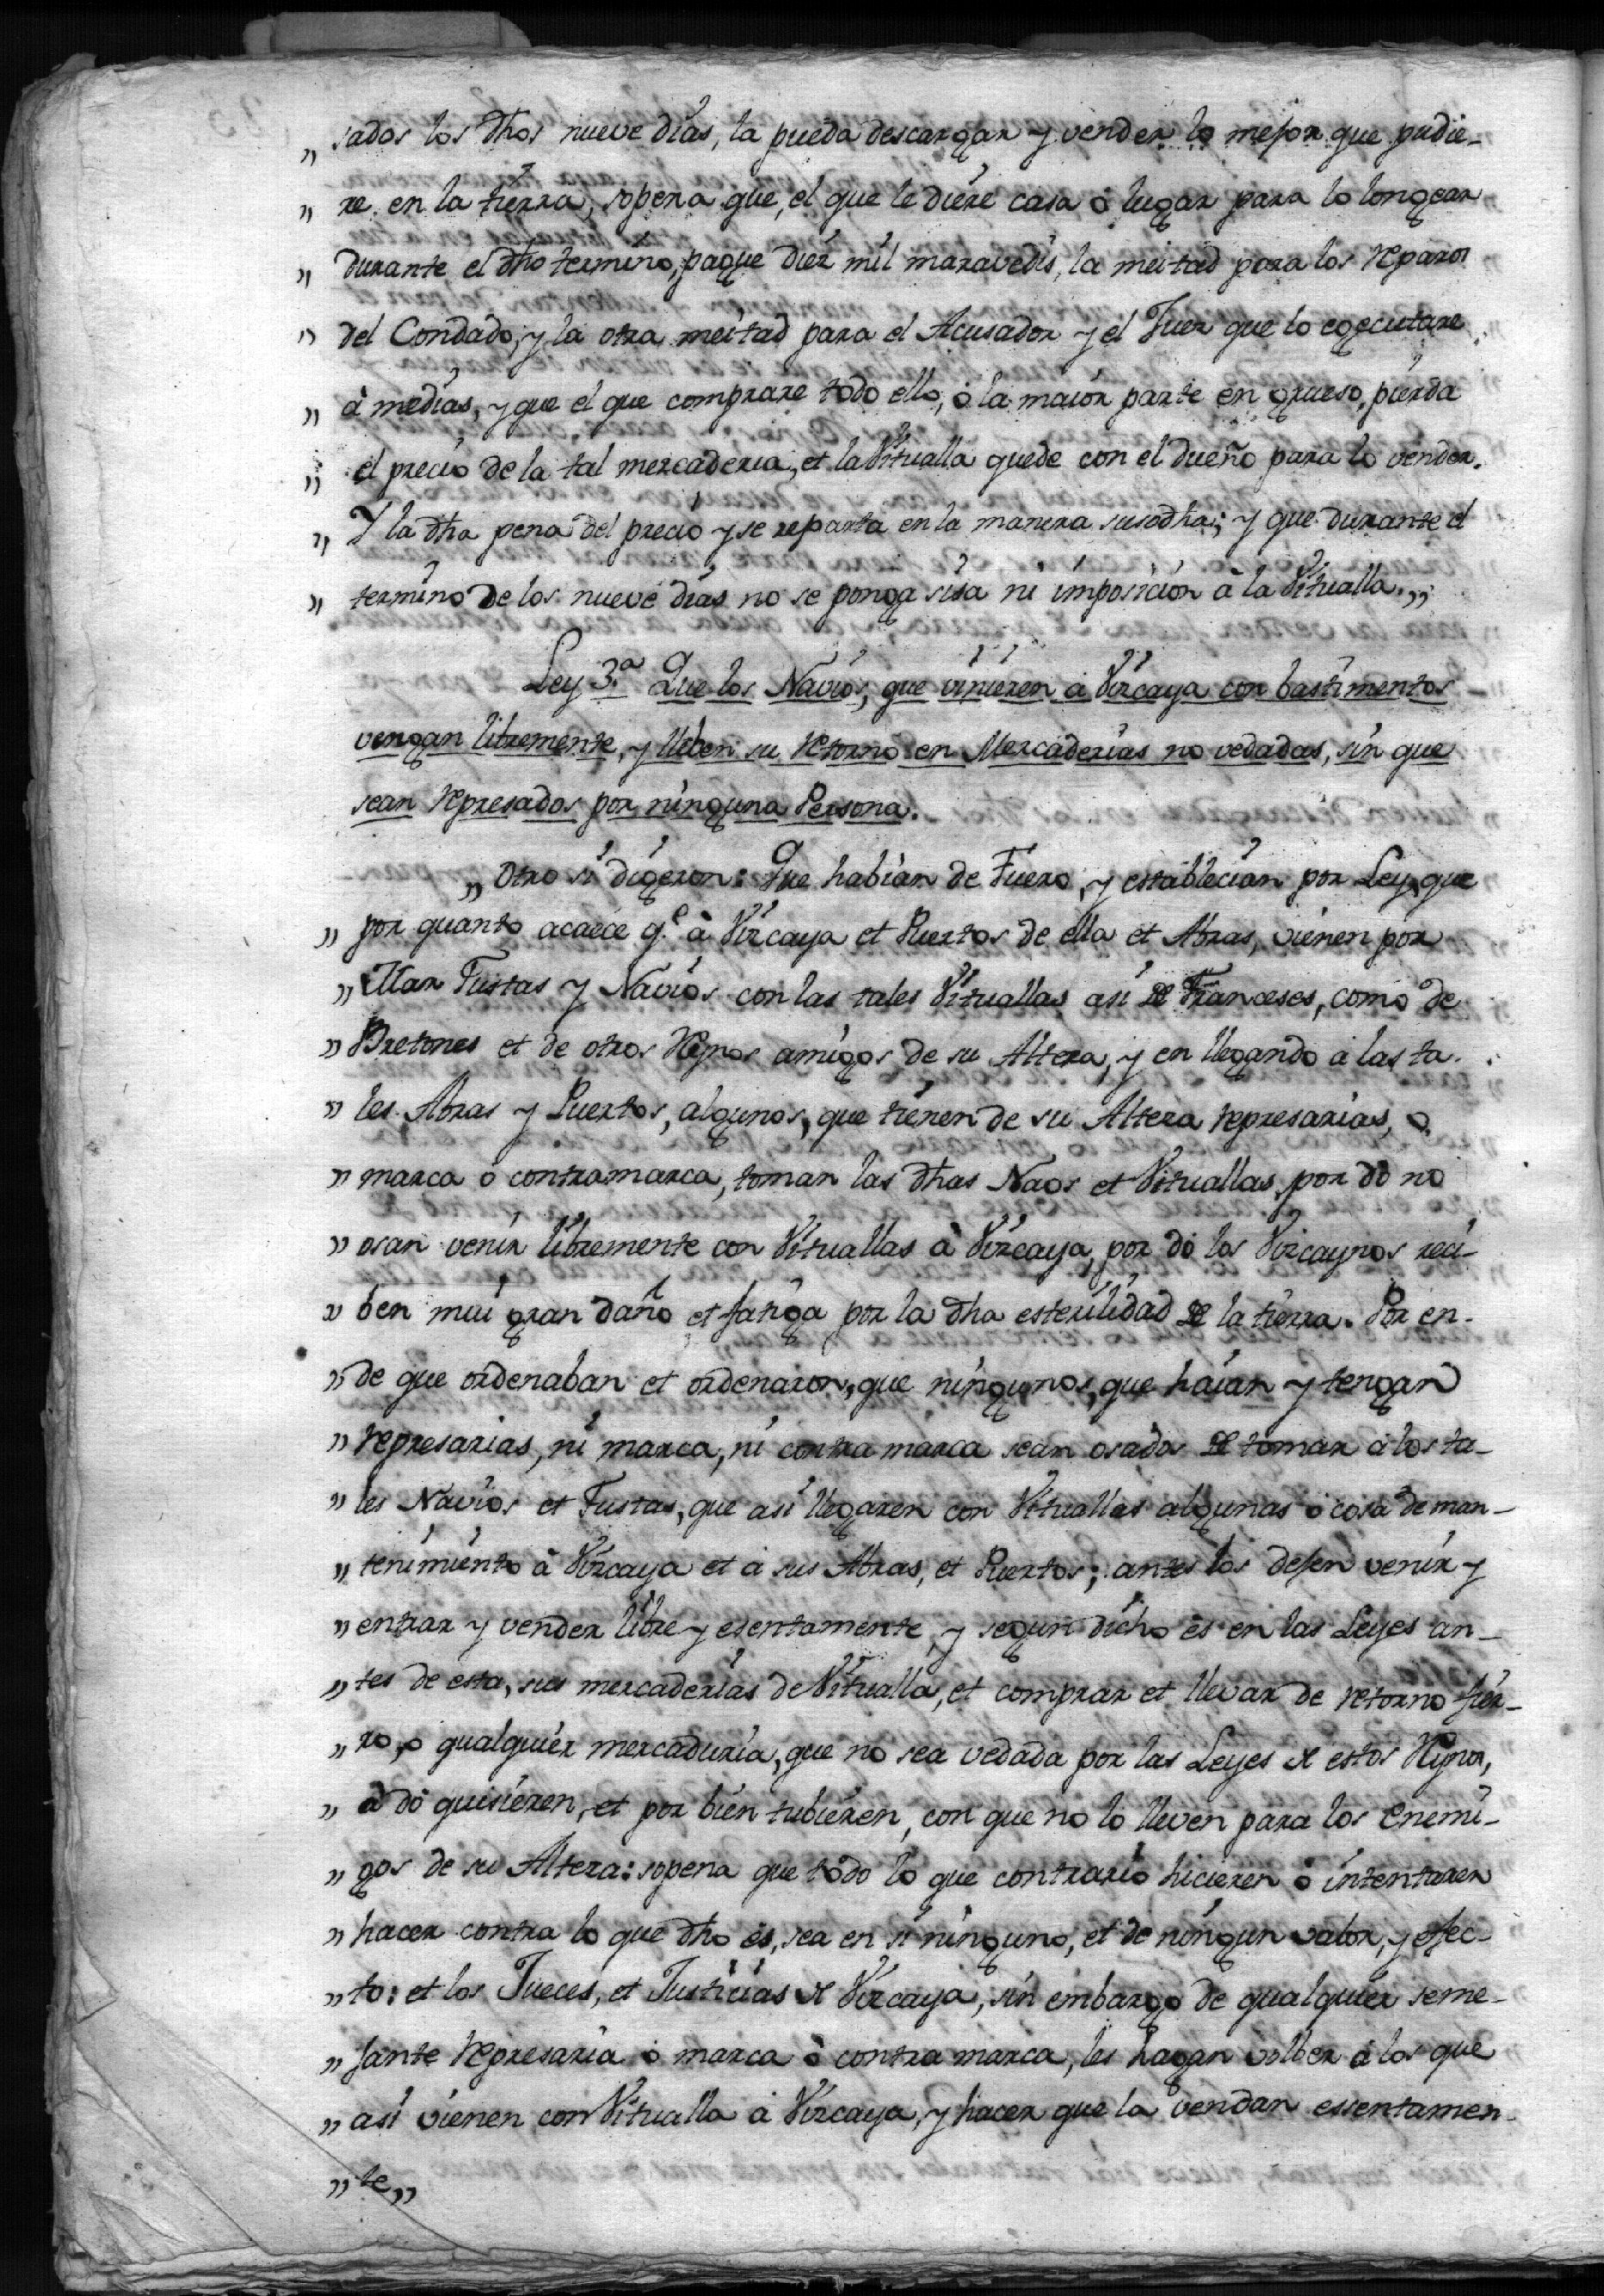 „ sados los dhos nueve días, la pueda descargar y vender lo mejor que pudie-
„ re en la tierra, sopena que, el que le diere casa ó lugar para lo longear
„ durante el dho termino, pague diez mil maravedis, la meitad para los reparos
„ del Condado, y la otra meitad para el Acusador y el Juez que lo egecutare
„ à medias, y que el que comprare todo ello, ó la maior parte en grueso, pierda
„ el precio de la tal mercaderia, et la Vitualla quede con el dueño para lo vender.
„ Y la dha pena del precio y se reparta en la manera susodha; y que durante el
„ termino de los nueve dias no se ponga sisa ni imposicion à la Vitualla.„
Ley 3.ª Que los Navios, que vinieren à Vizcaya con bastimentos
vengan libremente, y lleben su retorno en Mercaderias no vedadas, sin que
sean represados por ninguna Persona.
„ Otro si digeron: Que habian de Fuero, y establecian por Ley, que
„ por quanto acaece q.e à Vizcaya et Puertos de ella et Abras, vienen por
„ Mar Fustas y Navios con las tales Vituallas asi de Franceses, como de
„ Bretones et de otros Reynos amigos de su Alteza, y en llegando à las ta-
„ les Abras y Puertos, algunos, que tienen de su Alteza represarias, ò
„ marca ò contramarca, toman las dhas Naos et Vituallas, por do no
„ osan venir libremente con Vituallas à Vizcaya, por do los Vizcaynos reci-
„ ben mui gran daño et fatiga por la dha esterilidad de la tierra. Por en-
„ de que ordenaban et ordenaron, que ningunos, que haian y tengan
„ represarias, ni marca, ni contra marca sean osados de tomar à los ta-
„ les Navios et Fustas, que asi llegaren con Vituallas algunas ò cosa de man-
„ tenimiento à Vizcaya et à sus Abras, et Puertos; antes los dejen venir y
„ entrar y vender libre y esentamente, y segun dicho es en las Leyes an-
„ tes de esta, sus mercaderias de Vitualla, et comprar et llevar de retorno fier-
„ ro, o qualquier mercaduria, que no sea vedada por las Leyes de estos Reynos,
„ à do quisieren, et por bien tubieren, con que no lo lleven para los Enemi-
„ gos de su Alteza: sopena que todo lo que contrario hicieren ò intentaren
„ hacer contra lo que dho es, sea en si ninguno, et de ningun valor, y efec-
„ to: et los Jueces, et Justicias de Vizcaya, sin embargo de qualquier seme-
„ jante represaria ò marca ò contra marca, les hagan volber à los que
„ asi vienen con Vitualla à Vizcaya, y hacer que la vendan esentamen-
„ te„